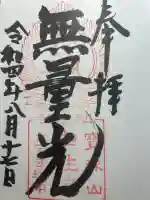 奉拝
無量光
令和四年八月十七日